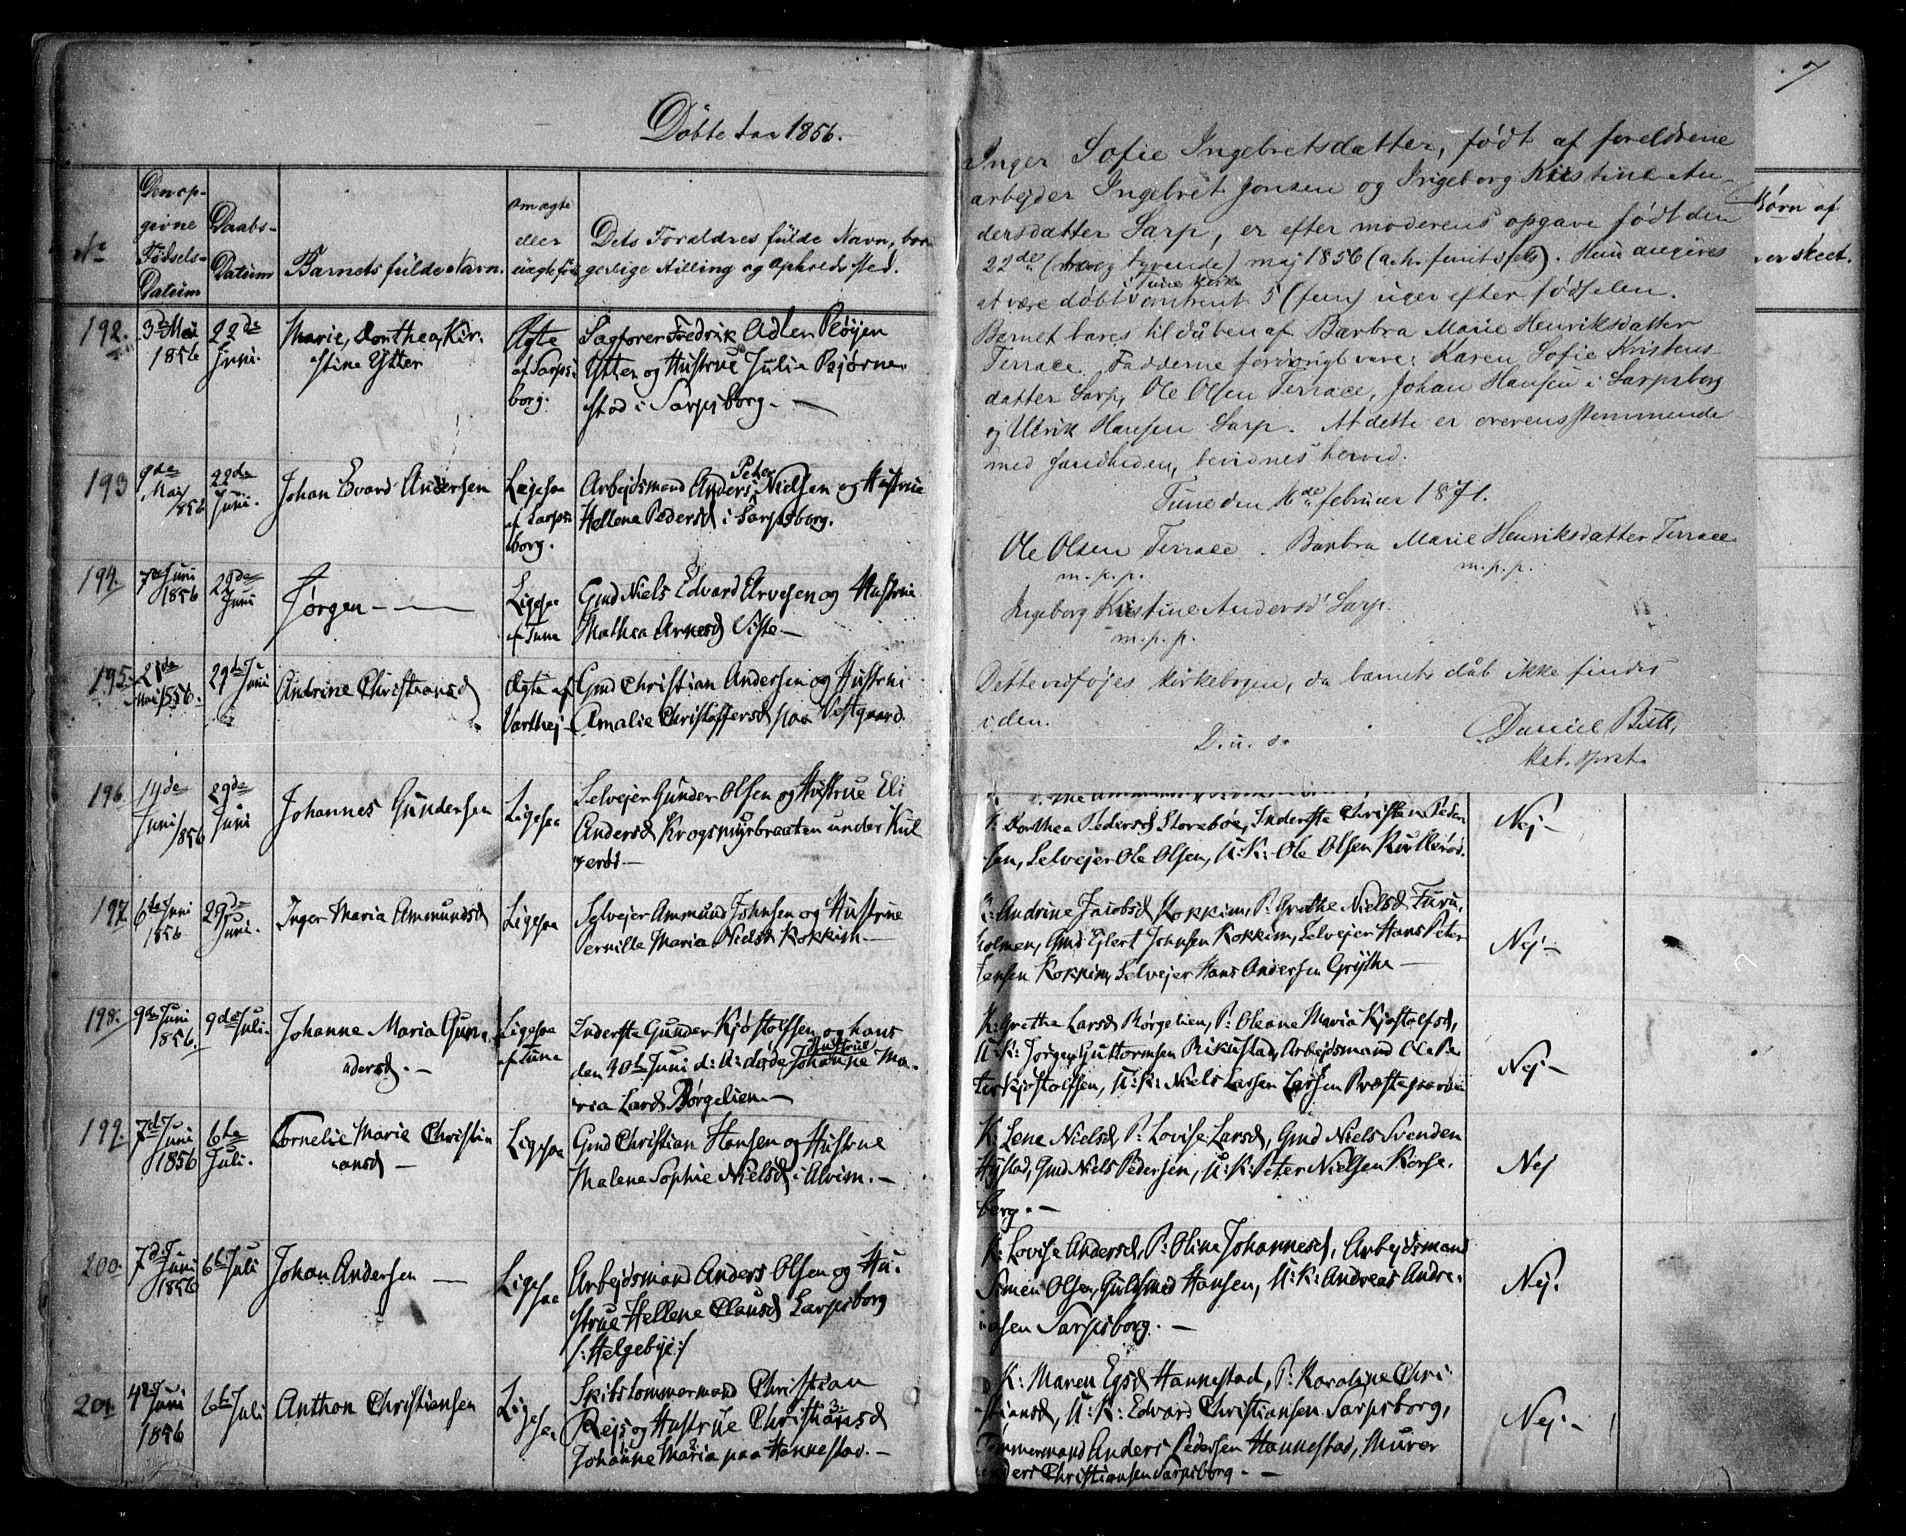 Døbte Aar 1856.
No
Den op-
givne
Fødsels-
Datum
Daabs-
Datum
Barnets fulde Navn.
om ægte
eller
uægte født
Dets Forældres fulde Navn, bor-
gerlige Stilling og Opholdssted.
192.
3die Mai
1856
22de
Juni.
Marie Dorthea Kir-
stine Ytter
Ægte
af Sarps-
borg.
Sagfører Fredrik Adler Pløyen
Ytter og Hustrue Julie Bjørne-
stad i Sarpsborg. —
193
9de
Mai
1856
22de
Juni.
Johan Evard Andersen
Ligesaa
af Sarps-
borg.
Arbejdsmand Anders Peter Nielsen og Hustrue
Hellena Pedersd i Sarpsborg.
194.
7de Juni
1856
29de
Juni
Jørgen — —
Ligesaa
af Tune
Gmd Niels Edvard Arvesen og Hustrue
Mathea Arnesd Viste. —
195.
21de
Mai 1856.
29de Ju
ni
Andrine Christiansd
Ægte af
Varthej-
Gmd Christian Andersen og Hustrui
Amalie Christoffersd paa Vestgaard
196.
14de
Juni 1856
29de
Juni
Johannes Gundersen
Ligesaa
Selvejer Gunder Olsen og Hustrue Eli
Andersd Krogsmyrbraaten under Kul
yerød —
197.
6te Juni
1856
29de
Juni.
Inger Maria Ammundsd
Ligesaa
Selvejer Ammund Johnsen og Hustrue
Pernille Maria Nielsd Kokkim —
198.
9de Juni
1856.
9de Juli.
Johanne Maria Gun-
dersd. —
Ligesaa
af Tune
Inderste Gunder Kjøstolfsen og hans
den 10de Juni d: A: døde Hustrue Johanne Ma-
ria Larsd Børgelien. —
199.
7de
Juni
1856
6te
Juli.
Cornelie Marie Christi
ansd —
Ligesaa
Gmd Christian Hansen og Hustrue
Malene Sophie Nielsd i Alvim. —
200.
7de
Juni
1856
6te Juli
Johan Andersen —
Ligesaa
Arbejdsmand Anders Olsen og Hu-
strue Hellene Clausd Sarpsborg
/: Helgebye :/
201.
4de
Juni
1856
6te Juli
Anthon Christiansen
Ligesaa
Skibstømmermand Christian
Rejs og Hustrue Christiansd
Johanne Maria paa Hannestad. —
7
Inger Sofie Ingebretsdatter, født af foreldrene
arbejder Ingebret Jonsen og Ingeborg Kristine An-
dersdatter Sarp, er efter moderens opgave født den
22de (to og tyvende) maj 1856 (a.h. femti seks). Hun angives
at være døbt i Tune Kirke omtrent 5 (fem) uger efter fødselen.
Barnet bares til dåben af Barbra Marie Henriksdatter
Terrace. Fadderne forøvrigt vare: Karen Sofie Kristens-
datter Sarp, Ole Olsen Terrace, Johan Hansen i Sarpsborg
og Ulrik Hansen Sarp. At dette er overensstemmende
med sandheden, bevidnes herved.
Tune den 16de februar 1871.
Ole Olsen Terrace. Barbra Marie Henriksdatter Terrace
m.p.p. m.p.p.
Ingeborg Kristine Andersd Sarp.
m.p.p.
Dette vidføjes kirkebogen, da barnets dåb ikke findes
i den.
D. u. s.
Daniel
kat. prst.
Børn af
er skeet.
K: Dorthea Pedersd Storebøe, Inderste Christen Peder
sen, Selvejer Ole Olsen, U:K: Ole Olsen Kullerød.
Nej —
K: Andrine Jacobsd Kokkim, P: Grethe Nielsd Furu-
holmen, Gmd Ejlert Johnsen Kokkim, Selvejer Hans Peter
Jensen Kokkim, Selvejer Hans Andersen Grythe —
Nej —
K: Grethe Larsd Børgelien, P: Oleane Maria Kjøstolfsd,
U:K: Jørgen Guttormsen Rikustad, Arbejdsmand Ole Pe-
ter Kjøstolfsen, U:K: Niels Larsen Præstegaarden
Nej —
K: Lene Nielsd, P: Lovise Larsd, Gmd Niels Svenden
Hystad, Gmd Niels Pedersen, U:K: Peter Nielsen Korse-
berg. —
Nej
K: Lovise Andersd, P: Oline Johannesd, Arbejdsmand
Simen Olsen, Guldsmed Hansen, U:K: Andreas Andre-
asen Sarpsborg. —
Nej.
K: Maren Egsd Hannestad, P: Karoline Chri
stiansd, U:K: Edvard Christiansen Sarpsborg,
Tømmermand Anders Pedersen Hannestad, Murer
Anders Christiansen Sarpsborg. —
Nej. —